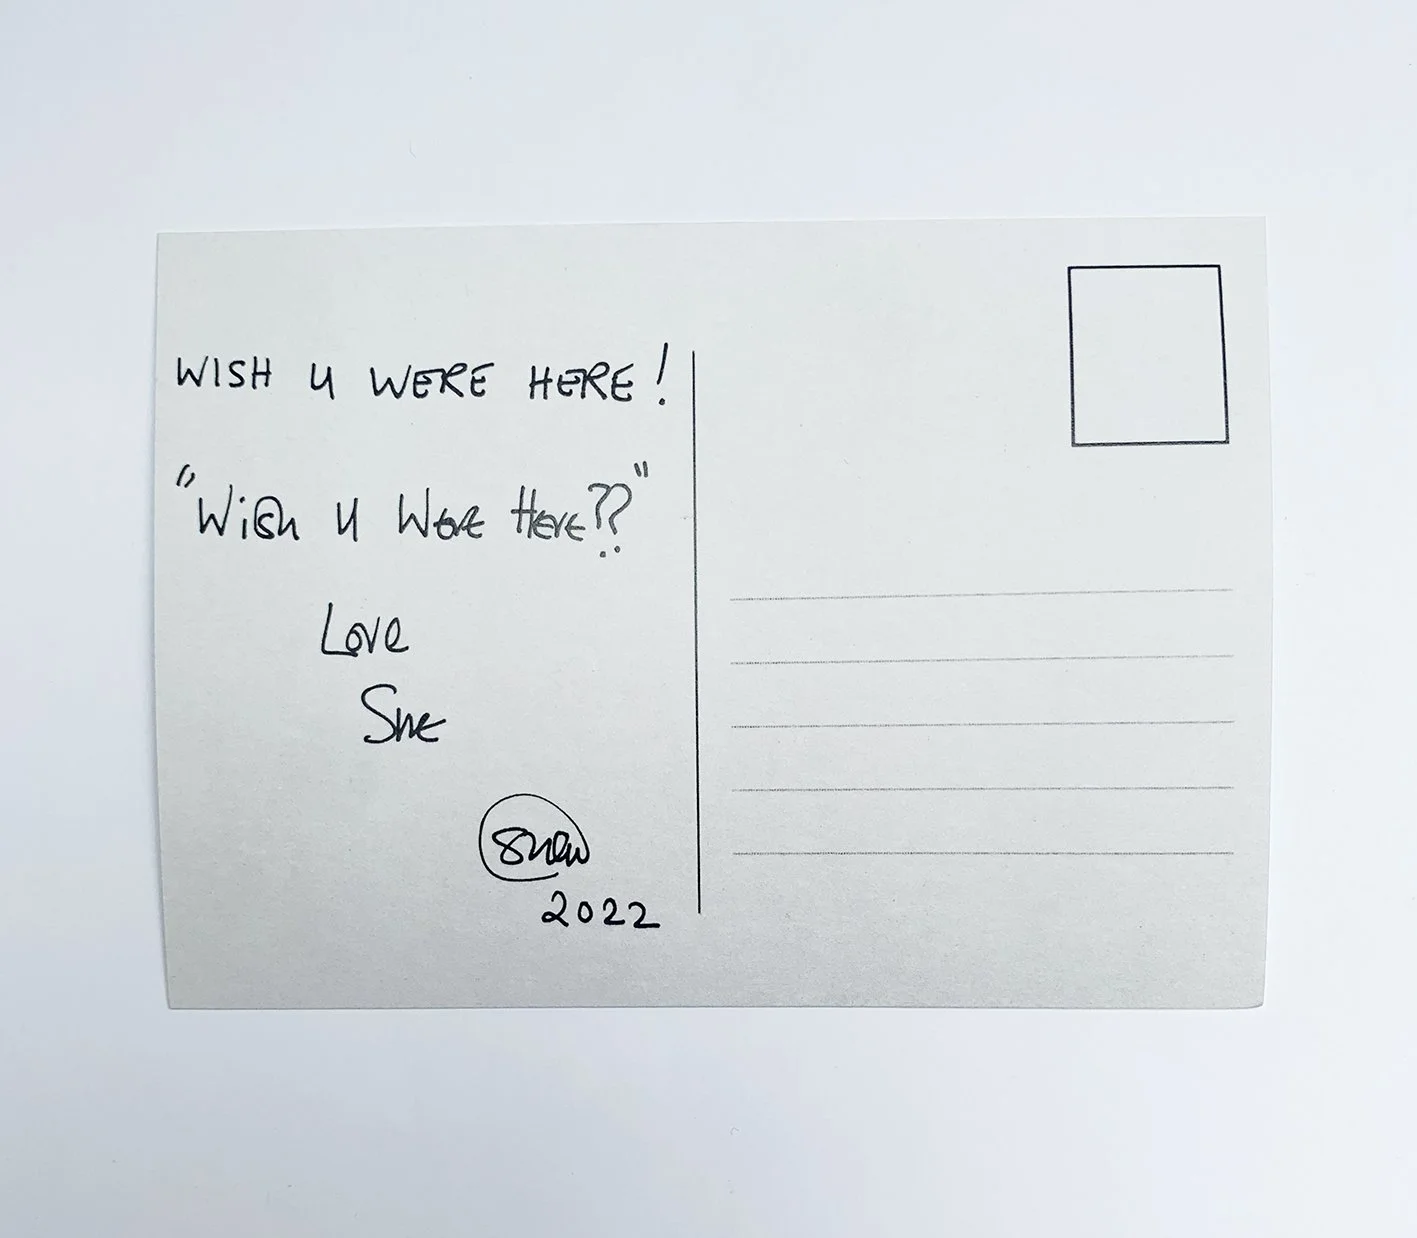 WISH U WERE HERE!
"Wish U Were Here??"
Love
She
2022